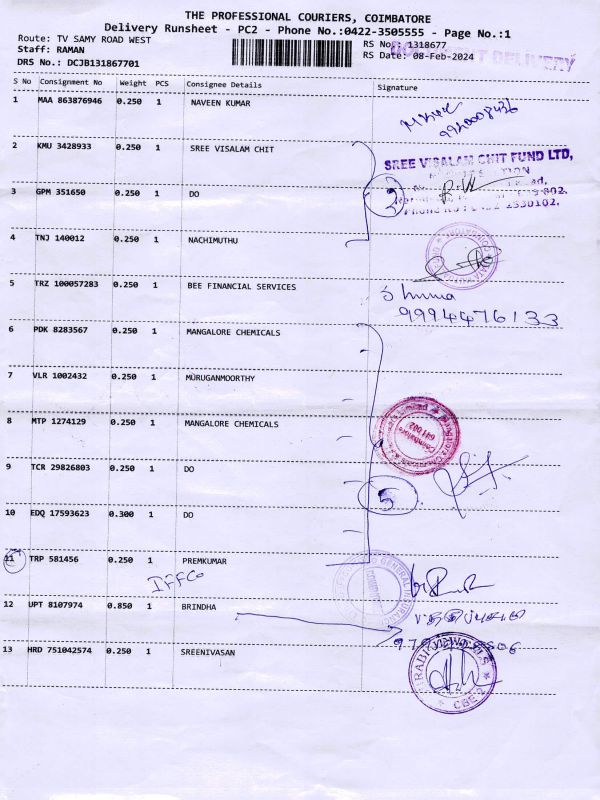 THE PROFESSIONAL COURIERS, COIMBATORE
Delivery Runsheet - PC2 - Phone No.:0422-3505555 - Page No.:1
Route: TV SAMY ROAD WEST
RS No.: 1318677
Staff: RAMAN
RS Date: 08-Feb-2024
DELIVERY
DRS No.: DCJB131867701
S No Consignment No Weight PCS Consignee Details Signature
1 MAA 863876946 0.250 1 NAVEEN KUMAR
2 KMU 3428933 0.250 1 SREE VISALAM CHIT
SREE VISALAM CHIT FUND LTD,
3 GPM 351650 0.250 1 DO
2
4 TNJ 140012 0.250 1 NACHIMUTHU
5 TRZ 100057283 0.250 1 BEE FINANCIAL SERVICES
9994476133
6 PDK 8283567 0.250 1 MANGALORE CHEMICALS
7 VLR 1002432 0.250 1 MURUGANMOORTHY
8 MTP 1274129 0.250 1 MANGALORE CHEMICALS
Coimbatore
641 002
9 TCR 29826803 0.250 1 DO
5
10 EDQ 17593623 0.300 1 DO
11 TRP 581456 0.250 1 PREMKUMAR
IFFCo
12 UPT 8107974 0.850 1 BRINDHA
13 HRD 751042574 0.250 1 SREENIVASAN